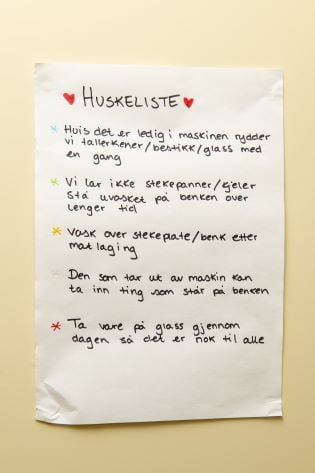 ♥ HUSKELISTE ♥
* Hvis det er ledig i maskinen rydder
vi tallerkener/bestikk/glass med
en gang
* Vi lar ikke stekepanner/kjeler
stå uvasket på benken over
lenger tid
* Vask over stekeplate/benk etter
matlaging
* Den som tar ut av maskin kan
ta inn ting som står på benken
* Ta vare på glass gjennom
dagen så det er nok til alle